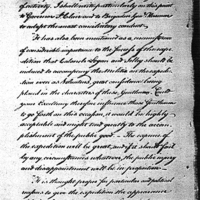 of activity. I shall write particularly on this point
to Governor St Clair and to Brigadier Genl Harmar
to whom
It has also been mentioned as a circumstance
of considerable importance to the success of the expe-
dition that Colonels Logan and Shelby should be
induced to accompany the Militia in the expedi-
tion even as Volunteers, great confidence being
placed in the characters of these Gentlemen. Could
your Excellency therefore influence these Gentlemen
to go forth on this occasion, it would be highly
acceptable and might tend greatly to the accom-
plishment of the public good. — The expence of
the expedition will be great, and if it should fail
by any circumstances whatever, the public injury
and disappointment will be in proportion.
It is thought proper for particular and political
reasons to give the expedition the appearance